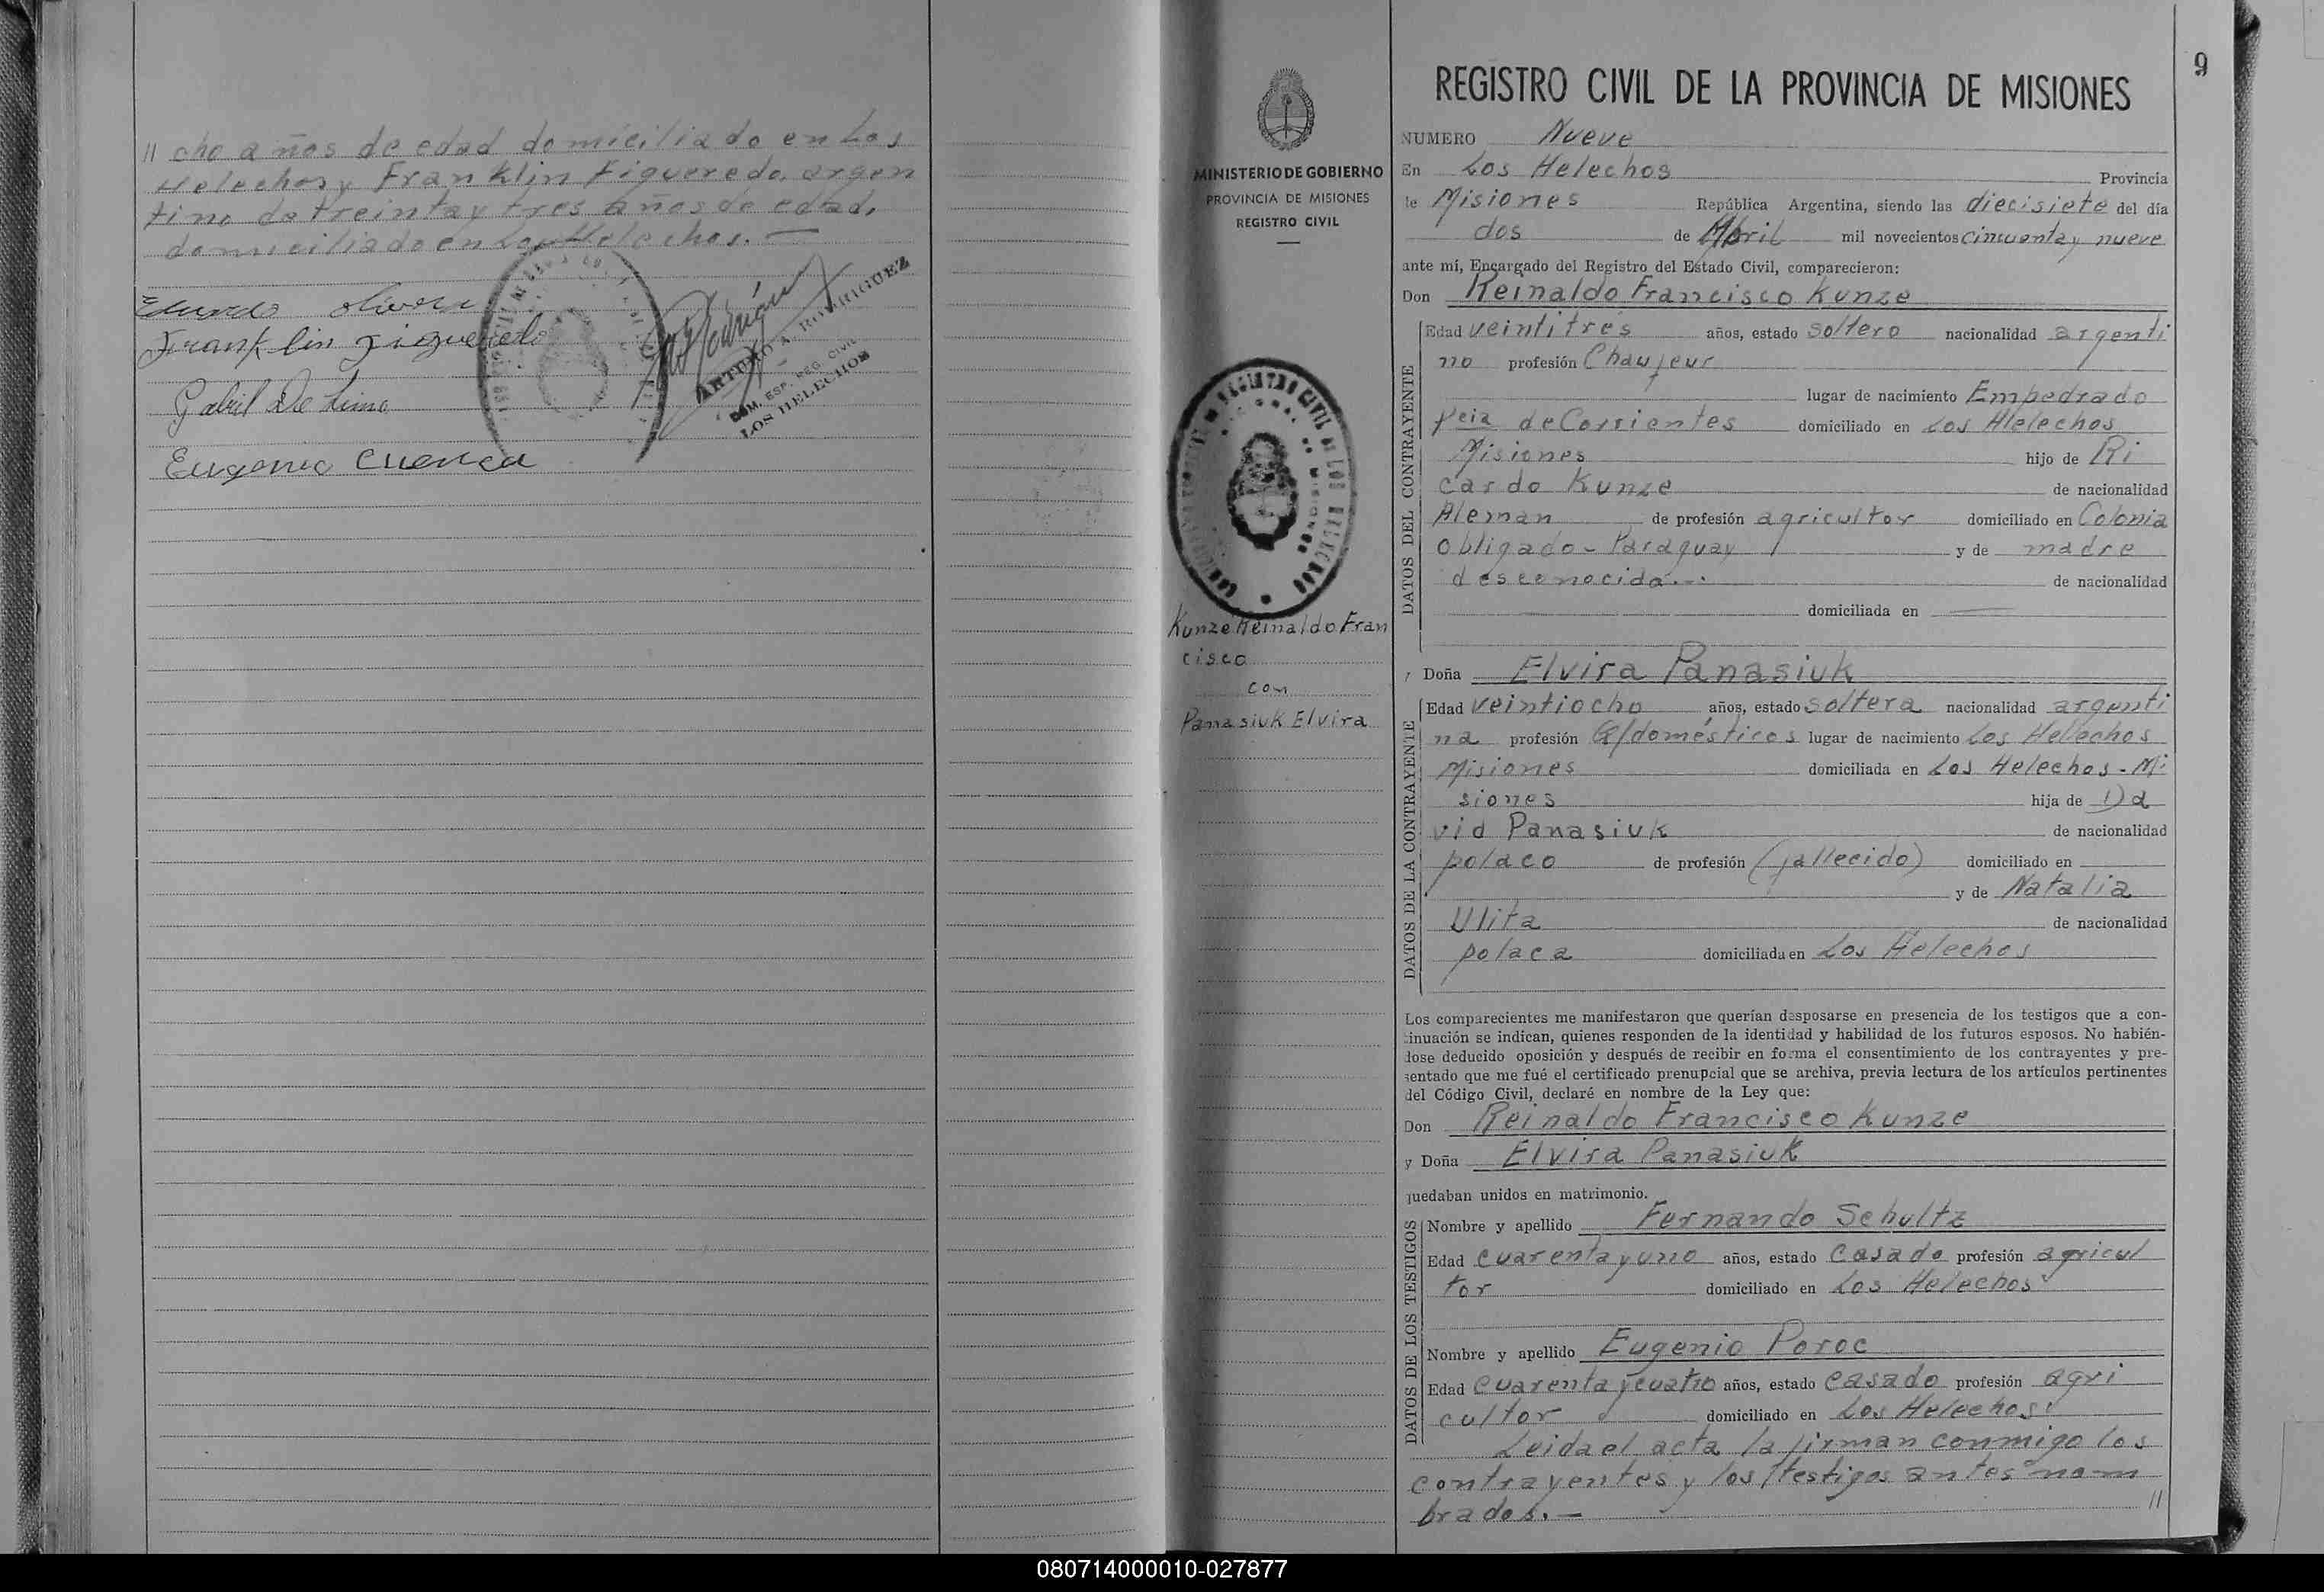 // cho años de edad domiciliado en Los
Helechos y Franklin Figueredo, argen
tino de treinta y tres años de edad,
domiciliado en Los Helechos. —
Franklin Figueredo
Gabril De Lima
Eugenio Cuenca
ARTURO A. RODRIGUEZ
ESP. REG. CIVIL
LOS HELECHOS
MINISTERIO DE GOBIERNO
PROVINCIA DE MISIONES
REGISTRO CIVIL
Kunze Reinaldo Fran
cisco
con
Panasiuk Elvira
9
REGISTRO CIVIL DE LA PROVINCIA DE MISIONES
NUMERO Nueve
En Los Helechos Provincia
de Misiones República Argentina, siendo las diecisiete del día
dos de Abril mil novecientos cincuenta y nueve
ante mí, Encargado del Registro del Estado Civil, comparecieron:
Don Reinaldo Francisco Kunze
DATOS DEL CONTRAYENTE
Edad veintitres años, estado soltero nacionalidad argenti
no profesión Chaufeur
lugar de nacimiento Empedrado
Pcia de Corrientes domiciliado en Los Helechos
Misiones hijo de Ri
cardo Kunze de nacionalidad
Aleman de profesión agricultor domiciliado en Colonia
Obligado - Paraguay y de madre
desconocida... de nacionalidad
domiciliada en
y Doña Elvira Panasiuk
DATOS DE LA CONTRAYENTE
Edad veintiocho años, estado soltera nacionalidad argenti
na profesión Q/domésticos lugar de nacimiento Los Helechos
Misiones domiciliada en Los Helechos - Mi
siones hija de Da
vid Panasiuk de nacionalidad
polaco de profesión (fallecido) domiciliado en
y de Natalia
Ulita de nacionalidad
polaca domiciliada en Los Helechos
Los comparecientes me manifestaron que querían desposarse en presencia de los testigos que a con-
tinuación se indican, quienes responden de la identidad y habilidad de los futuros esposos. No habién-
dose deducido oposición y después de recibir en forma el consentimiento de los contrayentes y pre-
sentado que me fué el certificado prenupcial que se archiva, previa lectura de los artículos pertinentes
del Código Civil, declaré en nombre de la Ley que:
Don Reinaldo Francisco Kunze
y Doña Elvira Panasiuk
quedaban unidos en matrimonio.
DATOS DE LOS TESTIGOS
Nombre y apellido Fernando Schultz
Edad cuarenta y uno años, estado casado profesión agricul
tor domiciliado en Los Helechos
Nombre y apellido Eugenio Poroc
Edad cuarenta y cuatro años, estado casado profesión agri
cultor domiciliado en Los Helechos.
Leida el acta la firman conmigo los
contrayentes y los testigos antes nom
brados. — //
080714000010-027877